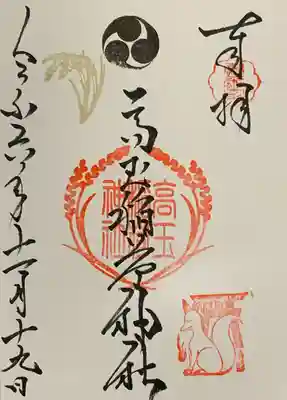 奉拝
高玉稲荷神社
令和六年十一月十九日
高玉
神社